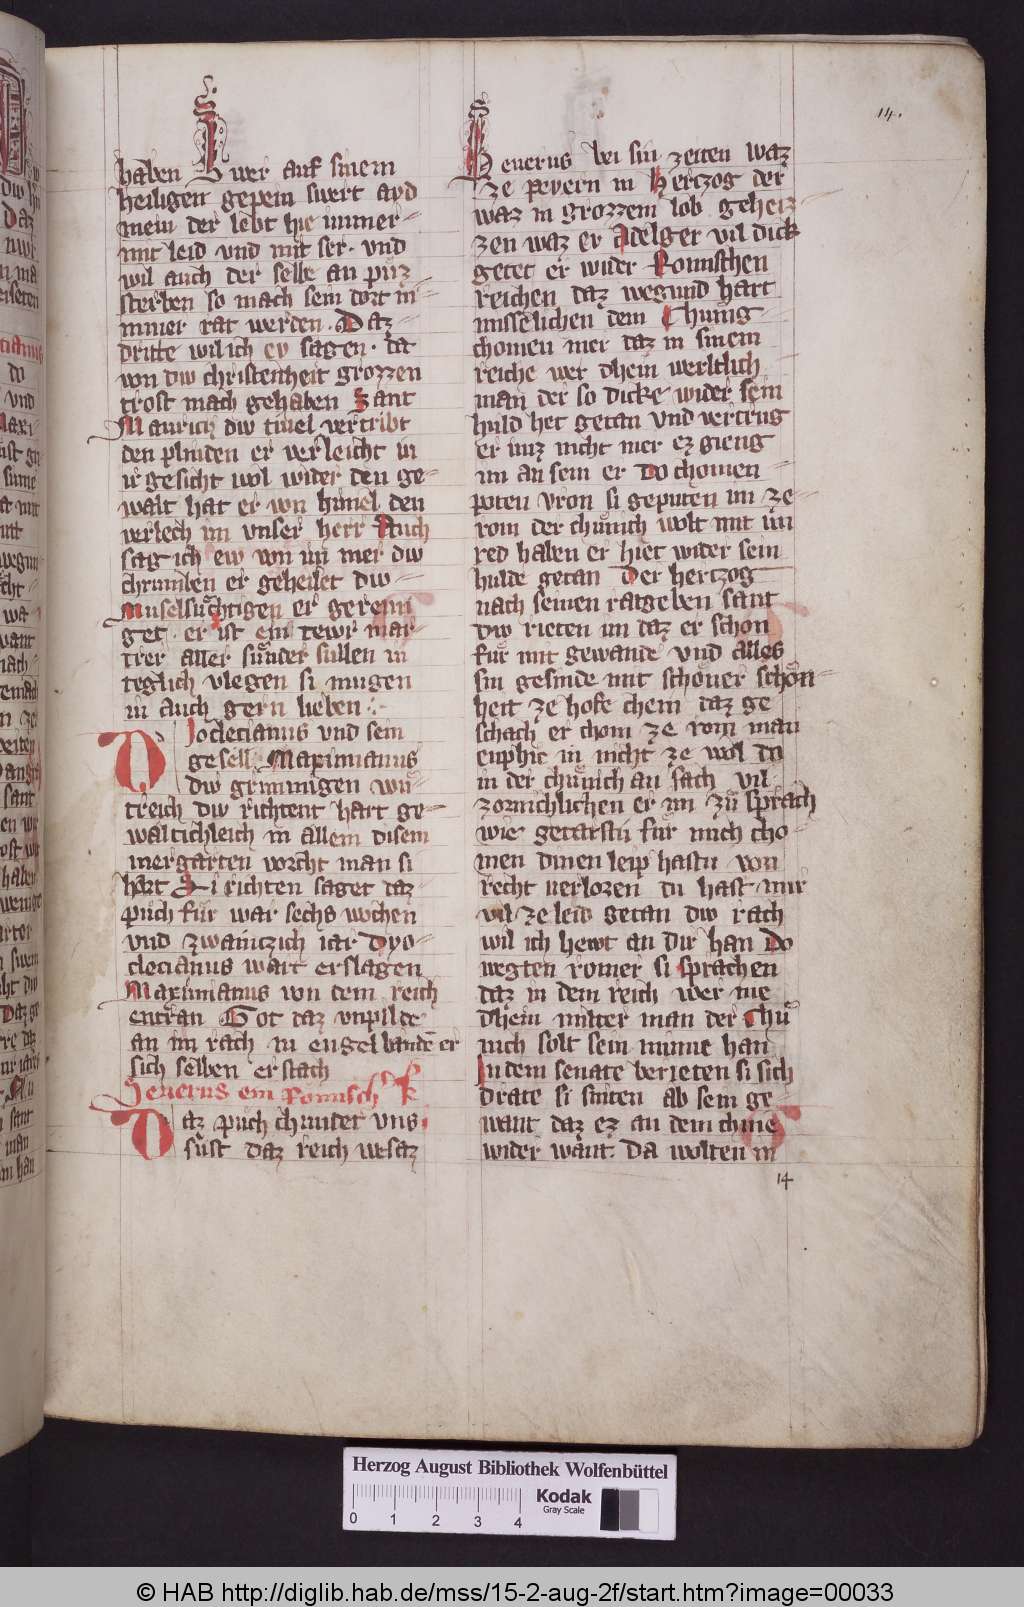 14.
haben Swer auf sinem
heiligen gepein swert ayd
mein der lebt hie immer
mit leid vnd mit ser · vnd
wil auch der selbe an puz
sterben so mach sein dort ni
mmer rat werden · Daz
dritte wil ich ev sagen · da
von div christenheit grozzen
trost mach gehaben Sant
Mauricz div tiuel vertribt
den plinden er verleicht in
ir gesicht wol wider den ge
walt hat er von himel den
verlech im vnser herr Auch
sag ich ew von im mer div
chrumben er geheilet div
Muselsuͤchtigen er gereini
get · er ist ein tewr mar
trer aller suͤnder sullen in
teglich vlegen si mugen
in auch gern lieben
Dioclecianus vnd sein
gesell Maximianus
div grimmigen wuͤ
treich div richtent hart ge
waltichleich in allem disem
mergarten vorcht man si
hart Si richten saget daz
puͤch fuͤr war sechs wochen
vnd zwainczich iar Dyo
clecianus wart erslagen
Maximianus von dem reich
entran Got daz vnpilde
an im rach in engelbande er
sich selben erstach
Seuerus ein Romisch k
Daz puͤch chundet vns
sust daz reich wesaz
Seuerus bei sin zeiten waz
ze peyern in herczog der
waz in grozzem lob geheiz
zen waz er Adelger vil dick
getet er wider Romischen
reichen daz wegund hart
misselichen dem Chunig
chomen mer daz in sinem
reiche wer dhein werltlich
man der so dicke wider sein
huld het getan vnd vertrug
er imz nicht mer ez gieng
im an sein er Do chomen
poten vron si geputen im ze
rom der chuͤnich wolt mit im
red haben er hiet wider sein
hulde getan Der herczog
nach seinen ratgeben sant
div rieten im daz er schon
fuͤr mit gewande vnd alles
sin gesinde mit schoͤner schoͤn
heit ze hofe chem daz ge
schach er chom ze rom man
enphie in nicht ze wol Do
in der chuͤnich an sach vil
zornichlichen er im zuͤ sprach
wie getarstu fuͤr mich cho
men dinen leip hastu von
recht verlozen du hast mir
vil ze leid getan div rach
wil ich hewt an dir han Do
wegten romer si sprachen
daz in dem reich wer nie
dhein milter man der Chuͤ
nich solt sein minne han
In dem senate berieten si sich
drate si sniten ab sein ge
want daz ez an dem chnie
wider want Da wolten in
14
Herzog August Bibliothek Wolfenbüttel
0 1 2 3 4
Kodak
Gray Scale
© HAB http://diglib.hab.de/mss/15-2-aug-2f/start.htm?image=00033